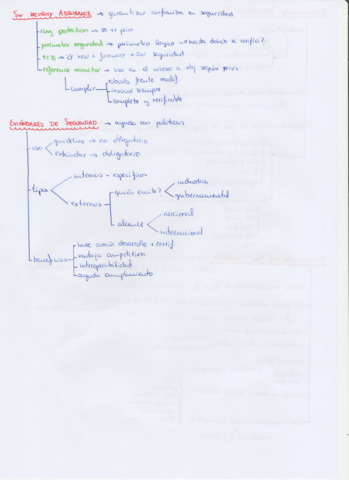 SW SECURITY ASSURANCE → garantizar confianza en seguridad
ring protection →
perímetro seguridad → perímetro lógico → hasta dónde se confía?
TCB → HW + firmware + SW seguridad
reference monitor → uso en el acceso a obj según privs
cumplir
robusto frente modif
invocar siempre
completo y verificable
ESTÁNDARES DE SEGURIDAD → ayuda con políticas
uso
guideline → no obligatorio
estándar → obligatorio
tipos
internos - específicos
externos
quién emite?
industria
gubernamental
alcance
nacional
internacional
beneficios
base común desarrollo + certif
ventaja competitiva
interoperabilidad
ayuda cumplimiento